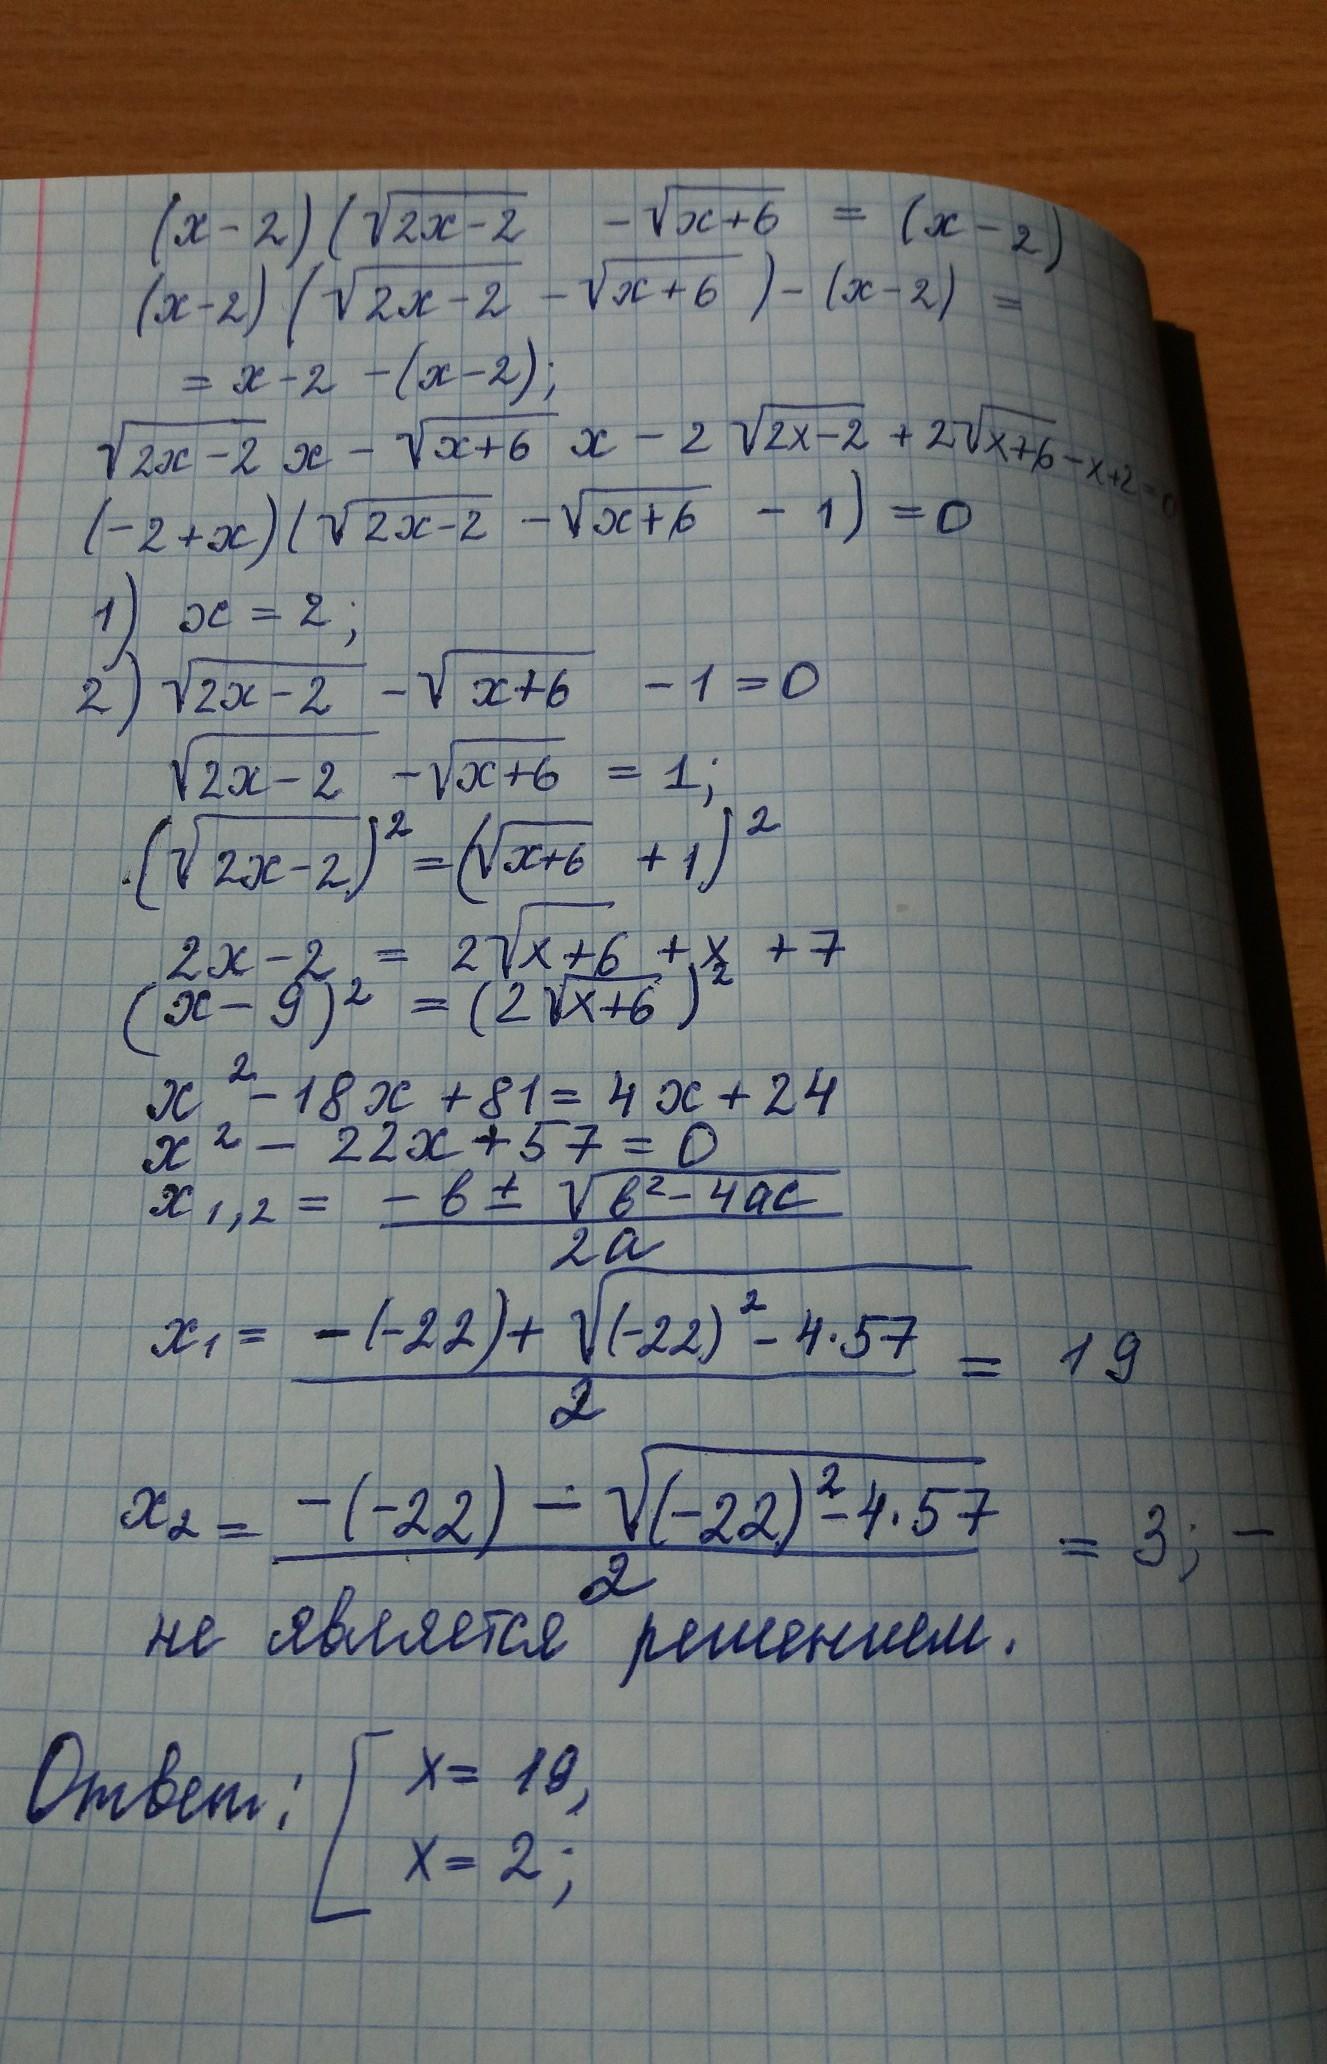 (x-2)(√2x-2 -√x+6 = (x-2)
(x-2)(√2x-2 -√x+6)-(x-2) =
= x-2 -(x-2);
√2x-2 x - √x+6 x - 2√2x-2 + 2√x+6 -x+2=0
(-2+x)(√2x-2 -√x+6 - 1) =0
1) x = 2;
2) √2x-2 -√x+6 -1=0
√2x-2 -√x+6 = 1;
(√2x-2)² =(√x+6 +1)²
2x-2 = 2√x+6 + x +7
(x-9)² = (2√x+6)²
x² -18x +81= 4x+24
x² - 22x+57=0
x1,2 = -в ± √в²-4ac / 2a
x1 = -(-22)+ √(-22)²-4·57 / 2 = 19
x2 = -(-22) - √(-22)²-4·57 / 2 = 3; -
не является решением.
Ответ: [ x= 19,
x= 2;